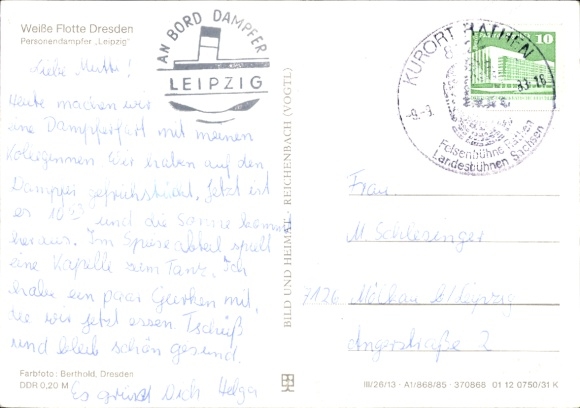 Weiße Flotte Dresden
Personendampfer „Leipzig"
AN BORD DAMPFER
LEIPZIG
KURORT RATHEN
Felsenbühne Rathen
Landesbühnen Sachsen
10
Liebe Mutti!
Heute machen wir
eine Dampferfart mit meinen
Kolleginnen Wir haben auf den
Dampfer gefrühstückt. Jetzt ist
es 10 und die Sonne kommt
heraus. Im Speiseabteil spielt
eine Kapelle zum Tanz. Ich
habe ein paar Gurken mit,
die wir jetzt essen. Tschüß
und bleib schön gesund.
Es grüsst Dich Helga
Farbfoto: Berthold, Dresden
DDR 0,20 M
BILD UND HEIMAT REICHENBACH (VOGTL)
Frau
M. Schlesinger
7126 Mölkau b/Leipzig
Angerstraße 2
III/26/13 · A1/868/85 · 370868 01 12 0750/31 K